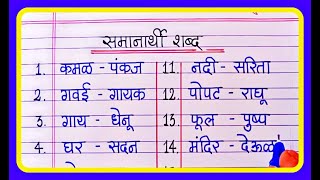 समानार्थी शब्द
1. कमळ - पंकज
2. गवई - गायक
3. गाय - धेनू
4. घर - सदन
11. नदी - सरिता
12. पोपट - राघू
13. फूल - पुष्प
14. मंदिर - देऊळ